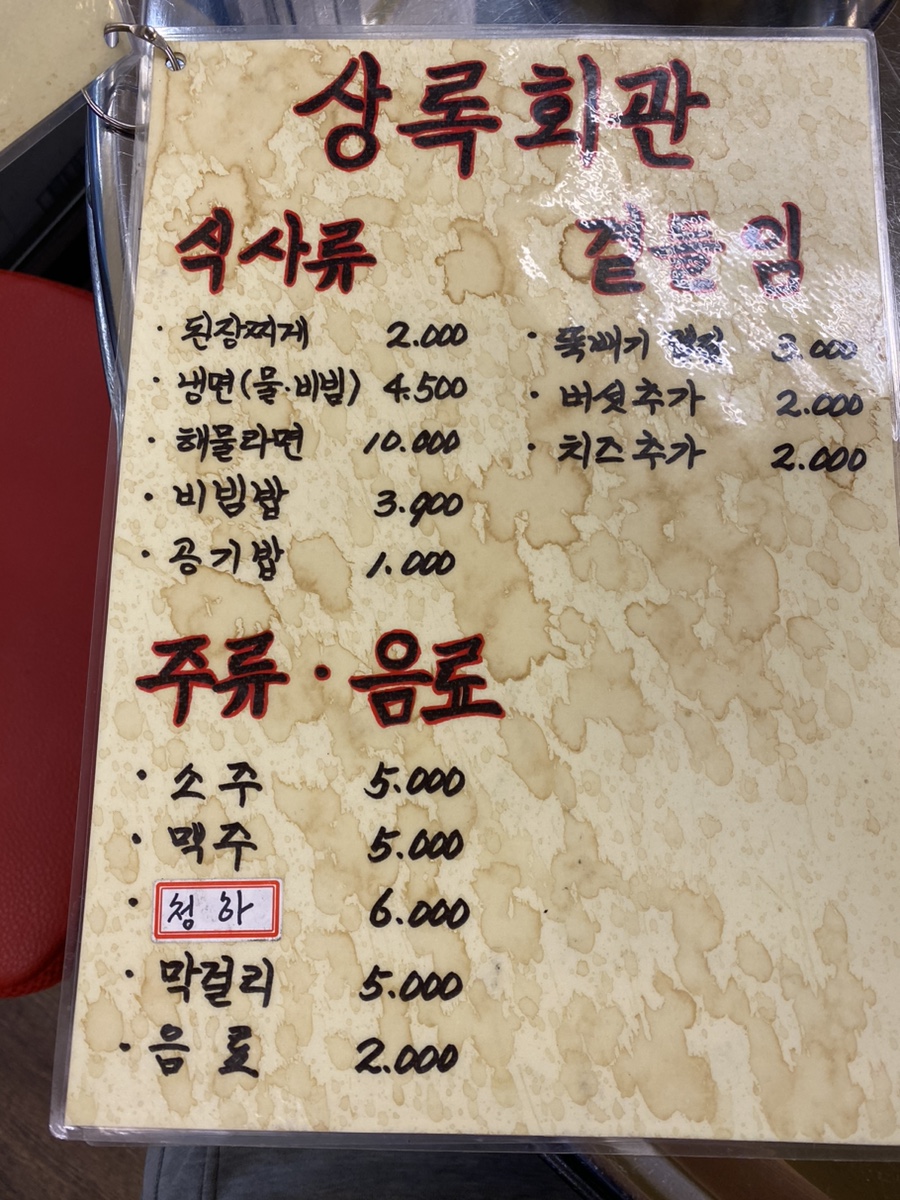 상록회관
식사류
· 된장찌개 2.000
· 냉면(물·비빔) 4.500
· 해물라면 10.000
· 비빔밥 3.900
· 공기밥 1.000
곁들임
· 뚝배기 3.000
· 버섯추가 2.000
· 치즈추가 2.000
주류·음료
· 소주 5.000
· 맥주 5.000
· 청하 6.000
· 막걸리 5.000
· 음료 2.000